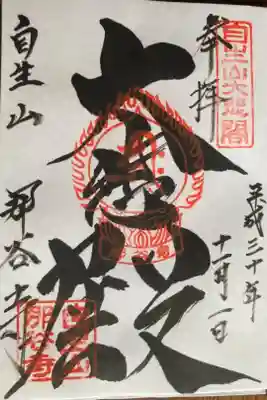 奉拝
自生山大悲閣
平成三十年
十一月一日
大悲殿
自生山
那谷寺
自生山
那谷寺